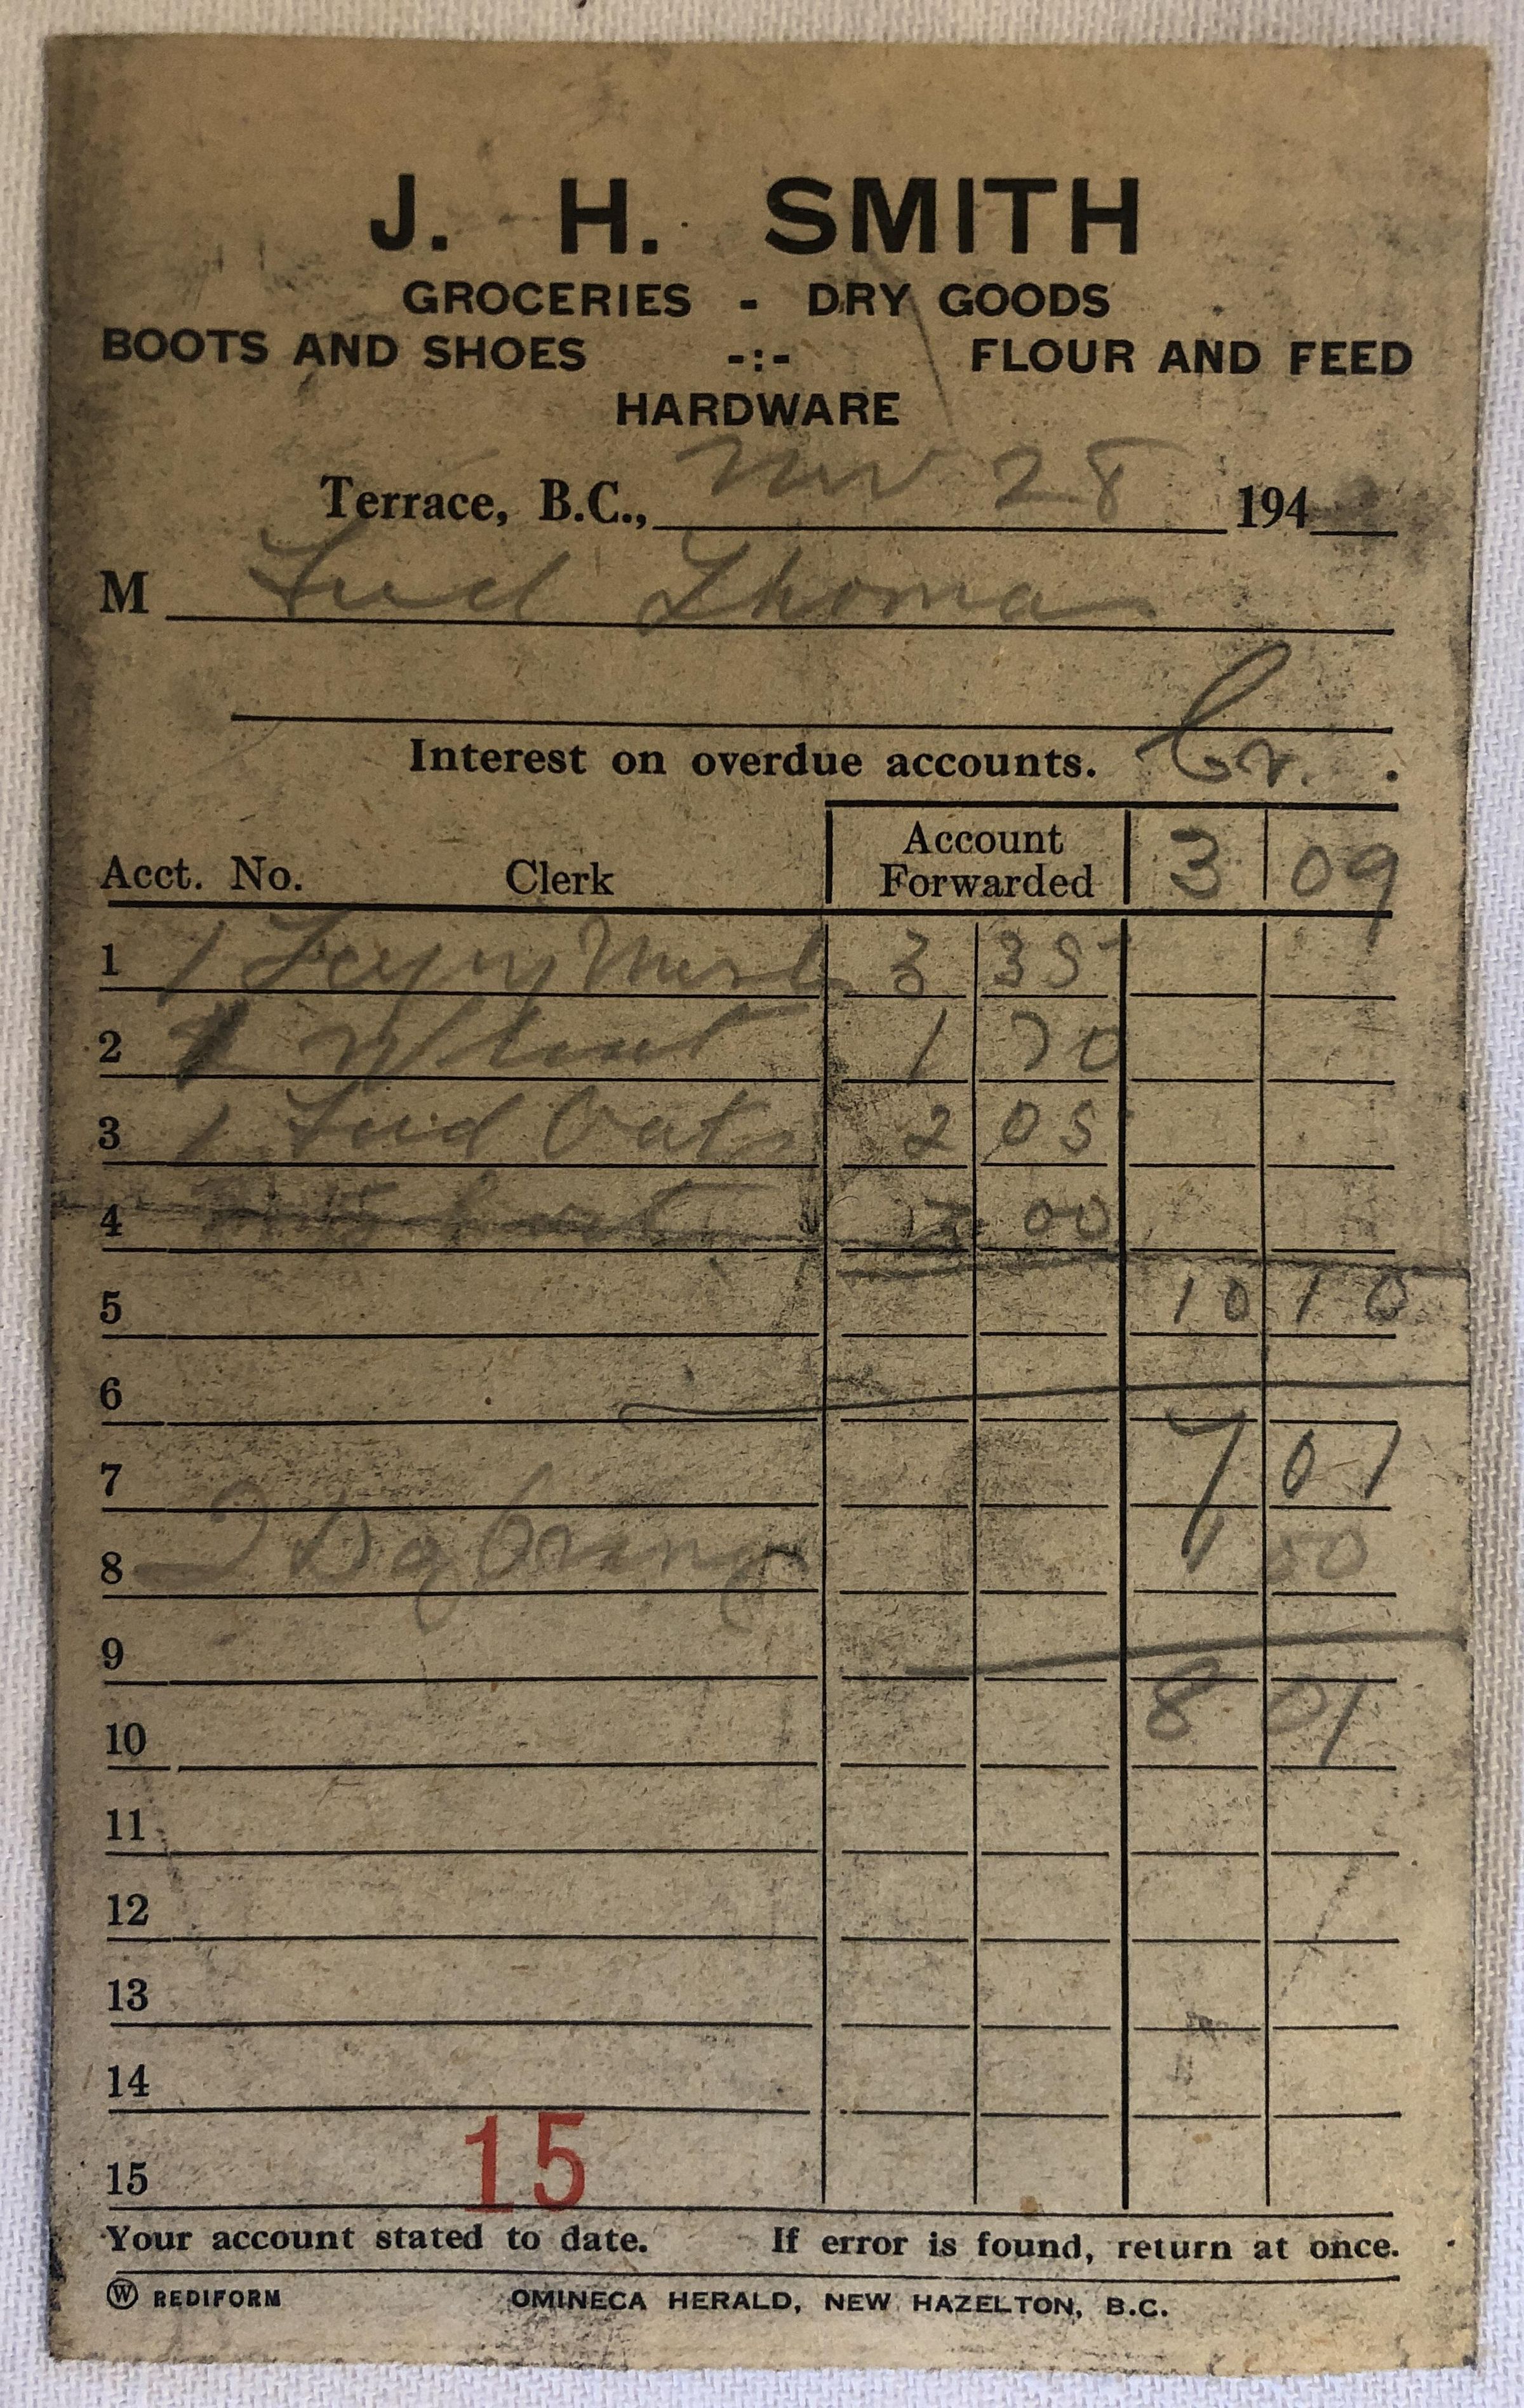 J. H. SMITH
GROCERIES - DRY GOODS
BOOTS AND SHOES -:- FLOUR AND FEED
HARDWARE
Terrace, B.C., Nov 28 194
M Fred Thomas
Interest on overdue accounts. Cr.
Acct. No. Clerk Account Forwarded 3 09
1 1 Laying Mash 3 35
2 1 Wheat 1 70
3 1 Feed Oats 2 05
4 3 00
5 10 10
6
7 7 01
8 2 Dg Orang 1 00
9
10 8 01
11
12
13
14
15 15
Your account stated to date. If error is found, return at once.
W REDIFORM OMINECA HERALD, NEW HAZELTON, B.C.